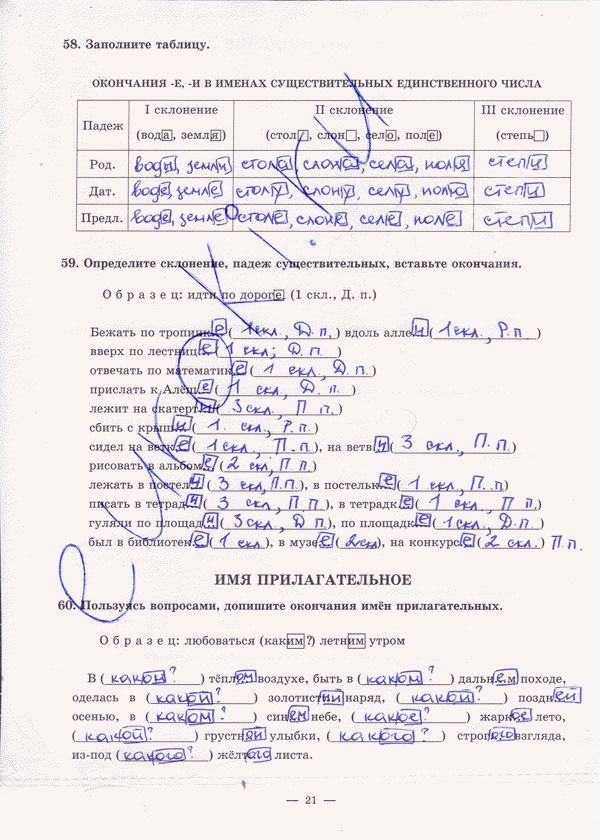 58. Заполните таблицу.
ОКОНЧАНИЯ -Е, -И В ИМЕНАХ СУЩЕСТВИТЕЛЬНЫХ ЕДИНСТВЕННОГО ЧИСЛА
Падеж I склонение (вода, земля) II склонение (стол, слон, село, поле) III склонение (степь)
Род. воды, земли стола, слона, села, поля степи
Дат. воде, земле столу, слону, селу, полю степи
Предл. воде, земле столе, слоне, селе, поле степи
59. Определите склонение, падеж существительных, вставьте окончания.
Образец: идти по дороге (1 скл., Д. п.)
Бежать по тропинке (1 скл., Д. п.) вдоль аллеи (1 скл., Р. п)
вверх по лестнице (1 скл; Д. п.)
отвечать по математике (1 скл., Д. п.)
прислать к Алёше (1 скл., Д. п.)
лежит на скатерти (3 скл., П п.)
сбить с крыши (1. скл., Р. п.)
сидел на ветке (1 скл., П. п.), на ветви (3 скл., П. п.)
рисовать в альбоме (2 скл., П. п.)
лежать в постели (3 скл., П. п.), в постельке (1 скл., П. п)
писать в тетради (3 скл., П п.), в тетрадке (1 скл., П п.)
гуляли по площади (3 скл., Д п.), по площадке (1 скл., Д. п)
был в библиотеке (1 скл.), в музее (2 скл), на конкурсе (2 скл.) П. п.
ИМЯ ПРИЛАГАТЕЛЬНОЕ
60. Пользуясь вопросами, допишите окончания имён прилагательных.
Образец: любоваться (каким?) летним утром
В (каком?) тёплом воздухе, быть в (каком?) дальнем походе,
оделась в (какой?) золотистый наряд, (какой?) поздней
осенью, в (каком?) синем небе, (какое?) жаркое лето,
(какой?) грустной улыбки, (какого?) строгого взгляда,
из-под (какого?) жёлтого листа.
— 21 —